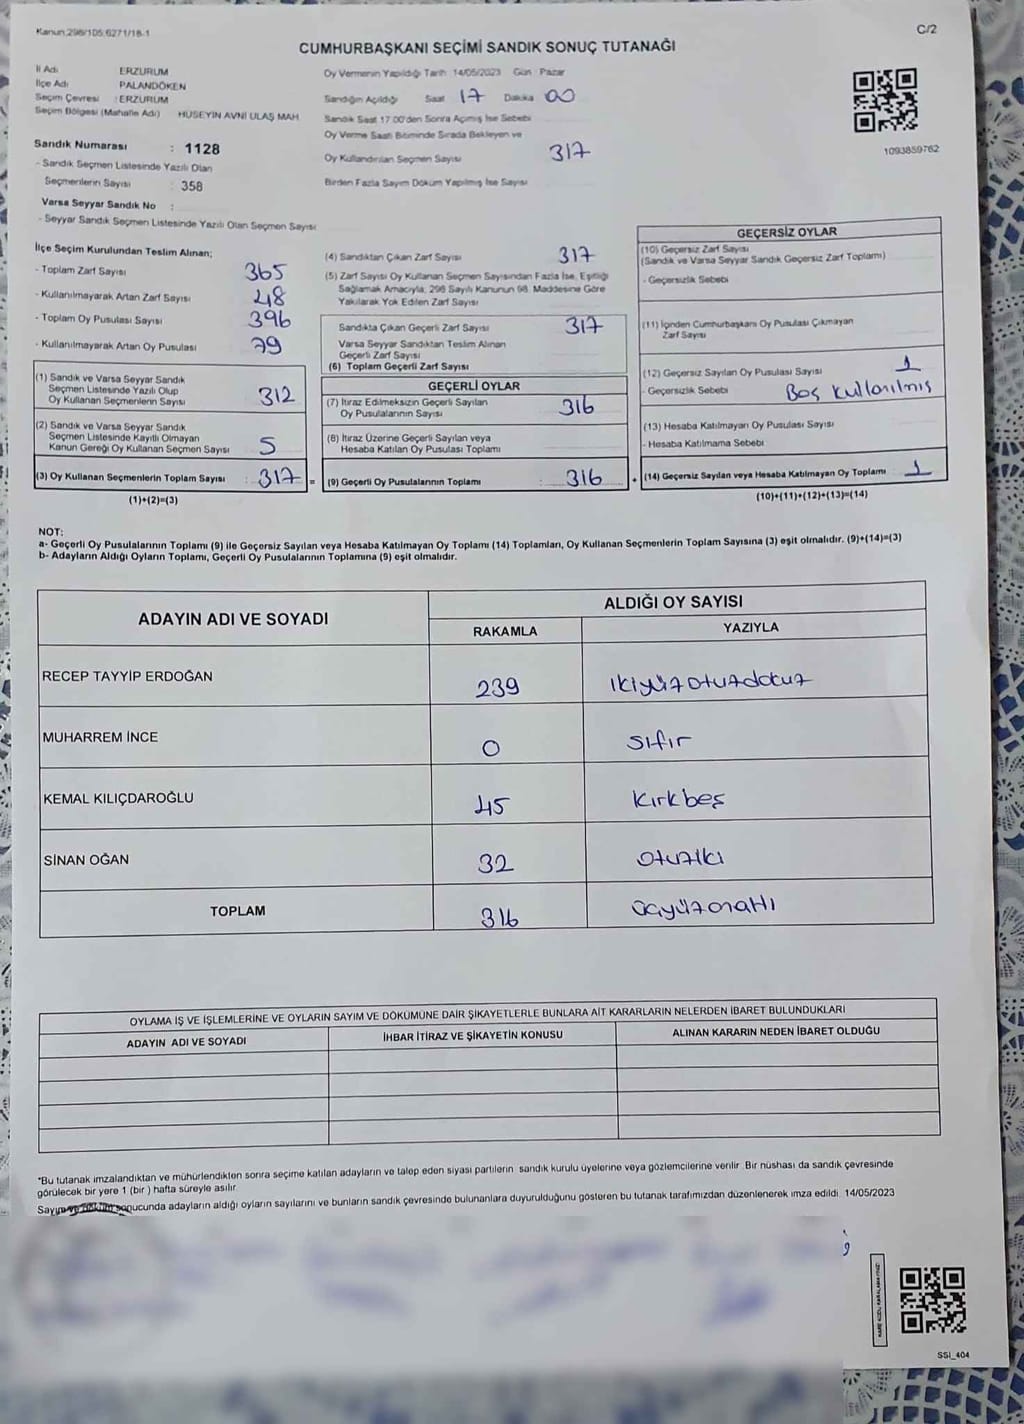 Kanun:298/105;6271/18-1
C/2
CUMHURBAŞKANI SEÇİMİ SANDIK SONUÇ TUTANAĞI
İl Adı ERZURUM
İlçe Adı PALANDÖKEN
Seçim Çevresi : ERZURUM
Seçim Bölgesi (Mahalle Adı) HÜSEYİN AVNİ ULAŞ MAH.
Sandık Numarası : 1128
- Sandık Seçmen Listesinde Yazılı Olan
Seçmenlerin Sayısı : 358
Varsa Seyyar Sandık No :
- Seyyar Sandık Seçmen Listesinde Yazılı Olan Seçmen Sayısı
Oy Vermenin Yapıldığı Tarih 14/05/2023 Gün : Pazar
Sandığın Açıldığı Saat 17 Dakika 00
Sandık Saat 17:00'den Sonra Açılmış İse Sebebi
Oy Verme Saati Bitiminde Sırada Bekleyen ve
Oy Kullandırılan Seçmen Sayısı 317
Birden Fazla Sayım Döküm Yapılmış İse Sayısı
1093859762
İlçe Seçim Kurulundan Teslim Alınan;
- Toplam Zarf Sayısı 365
- Kullanılmayarak Artan Zarf Sayısı 48
- Toplam Oy Pusulası Sayısı 396
- Kullanılmayarak Artan Oy Pusulası 79
(1) Sandık ve Varsa Seyyar Sandık
Seçmen Listesinde Yazılı Olup
Oy Kullanan Seçmenlerin Sayısı 312
(2) Sandık ve Varsa Seyyar Sandık
Seçmen Listesinde Kayıtlı Olmayan
Kanun Gereği Oy Kullanan Seçmen Sayısı 5
(3) Oy Kullanan Seçmenlerin Toplam Sayısı : 317 =
(1)+(2)=(3)
(4) Sandıktan Çıkan Zarf Sayısı 317
(5) Zarf Sayısı Oy Kullanan Seçmen Sayısından Fazla İse, Eşitliği
Sağlamak Amacıyla, 298 Sayılı Kanunun 98. Maddesine Göre
Yakılarak Yok Edilen Zarf Sayısı
Sandıkta Çıkan Geçerli Zarf Sayısı 317
Varsa Seyyar Sandıktan Teslim Alınan
Geçerli Zarf Sayısı
(6) Toplam Geçerli Zarf Sayısı
GEÇERLİ OYLAR
(7) İtiraz Edilmeksizin Geçerli Sayılan
Oy Pusulalarının Sayısı 316
(8) İtiraz Üzerine Geçerli Sayılan veya
Hesaba Katılan Oy Pusulası Toplamı
(9) Geçerli Oy Pusulalarının Toplamı : 316 +
GEÇERSİZ OYLAR
(10) Geçersiz Zarf Sayısı
(Sandık ve Varsa Seyyar Sandık Geçersiz Zarf Toplamı)
- Geçersizlik Sebebi
(11) İçinden Cumhurbaşkanı Oy Pusulası Çıkmayan
Zarf Sayısı
(12) Geçersiz Sayılan Oy Pusulası Sayısı 1
- Geçersizlik Sebebi Boş kullanılmış
(13) Hesaba Katılmayan Oy Pusulası Sayısı
- Hesaba Katılmama Sebebi
(14) Geçersiz Sayılan veya Hesaba Katılmayan Oy Toplamı 1
(10)+(11)+(12)+(13)=(14)
NOT:
a- Geçerli Oy Pusulalarının Toplamı (9) ile Geçersiz Sayılan veya Hesaba Katılmayan Oy Toplamı (14) Toplamları, Oy Kullanan Seçmenlerin Toplam Sayısına (3) eşit olmalıdır. (9)+(14)=(3)
b- Adayların Aldığı Oyların Toplamı, Geçerli Oy Pusulalarının Toplamına (9) eşit olmalıdır.
ADAYIN ADI VE SOYADI
ALDIĞI OY SAYISI
RAKAMLA YAZIYLA
RECEP TAYYİP ERDOĞAN 239 ikiyüzotuzdokuz
MUHARREM İNCE 0 sıfır
KEMAL KILIÇDAROĞLU 45 Kırkbeş
SİNAN OĞAN 32 otuziki
TOPLAM 316 üçyüzonaltı
OYLAMA İŞ VE İŞLEMLERİNE VE OYLARIN SAYIM VE DÖKÜMÜNE DAİR ŞİKAYETLERLE BUNLARA AİT KARARLARIN NELERDEN İBARET BULUNDUKLARI
ADAYIN ADI VE SOYADI İHBAR İTİRAZ VE ŞİKAYETİN KONUSU ALINAN KARARIN NEDEN İBARET OLDUĞU
*Bu tutanak imzalandıktan ve mühürlendikten sonra seçime katılan adayların ve talep eden siyasi partilerin sandık kurulu üyelerine veya gözlemcilerine verilir. Bir nüshası da sandık çevresinde
görülecek bir yere 1 (bir ) hafta süreyle asılır.
Sayım ve döküm sonucunda adayların aldığı oyların sayılarını ve bunların sandık çevresinde bulunanlara duyurulduğunu gösteren bu tutanak tarafımızdan düzenlenerek imza edildi. 14/05/2023
SSI_404